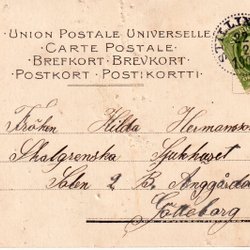 UNION POSTALE UNIVERSELLE
CARTE POSTALE
BREFKORT·BREVKORT
POSTKORT·POSTIKORTTI
Fröken Hilda Hermanson
Shalgrenska Sjukhuset
Salen 2 B. Anggårda
Göteborg